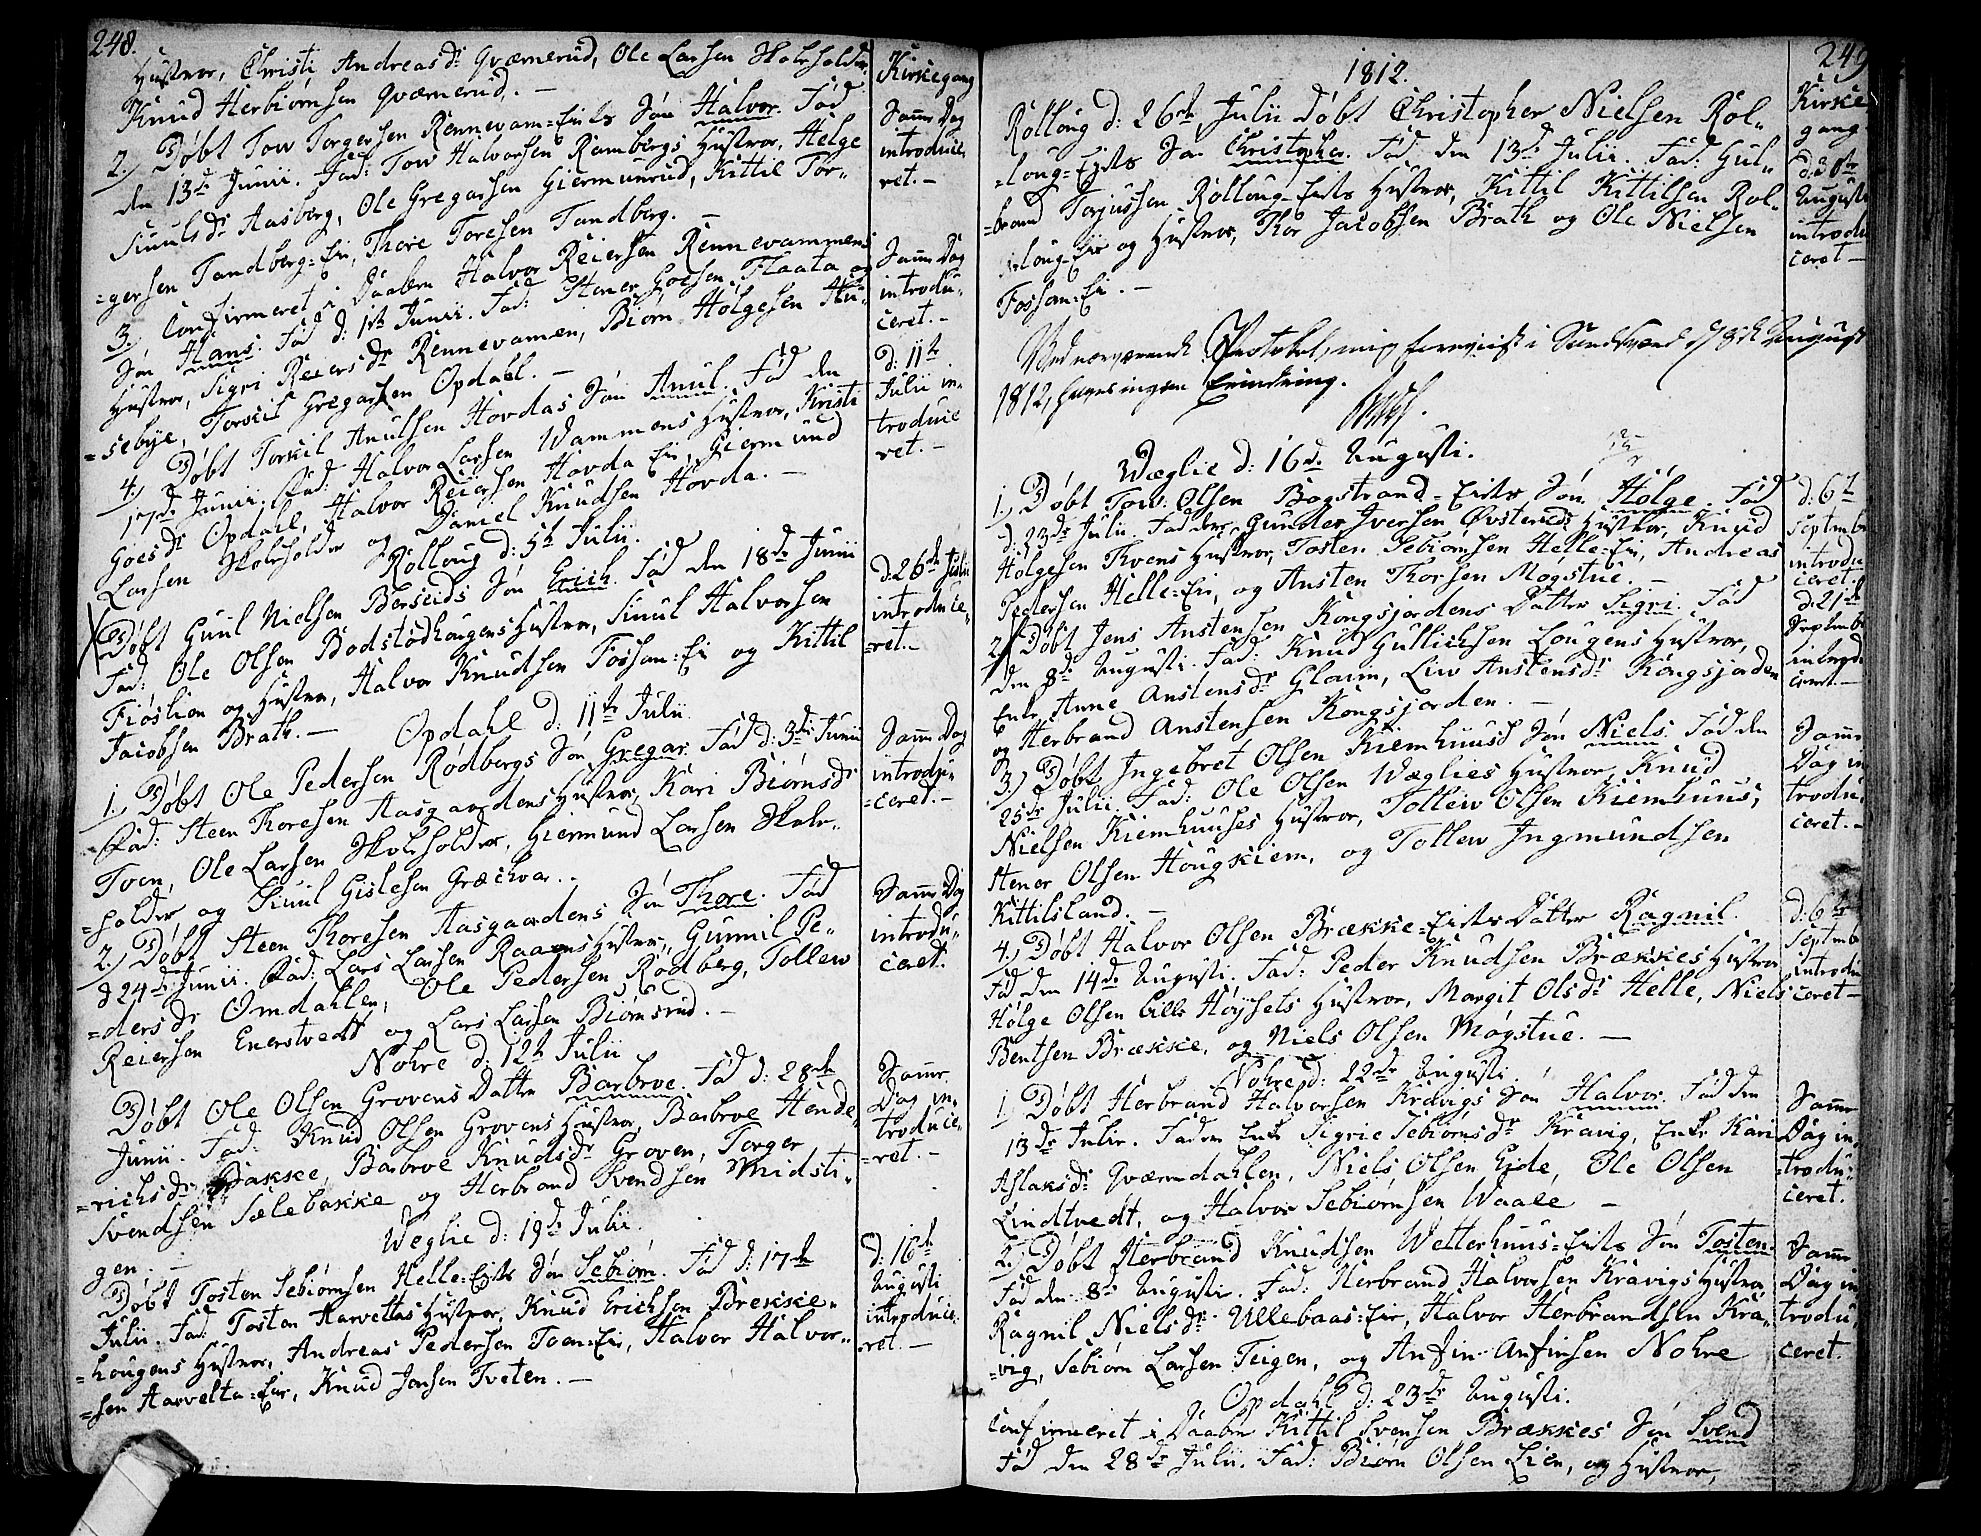 248.
Hustroe, Christi Andreasdr Qværnerud, Ole Larsen Skoleholder
Knud Herbiørnsen Qværnerud. —
2. Døbt Tow Torgersen Rennevam=Eies Søn Halvor. Fød
den 13de Junii. Fad: Tow Halvorsen Rambergs Hustroe, Helge
Siuulsdr Aasberg, Ole Gregarsen Giermunrud, Kittil Tor-
=gersen Tandberg=Eie, Thore Toresen Tandberg. —
3. Confirmeret i Daaben Halvor Reiersen Rennevammens
Søn Hans. Fød d: 1ste Junii. Fad: Stener Goesen Flaata og
Hustroe, Sigri Reiersdr Rennevamen, Biørn Holgesen Hu-
=sebye, Torkil Gregarsen Opdahl. —
4. Døbt Torkil Anulsen Hovdas Søn Anul. Fød den
17de Junii. Fad: Halvor Larsen Wammens Hustroe, Kristi
Goesdr Opdahl, Halvor Reiersen Hovda Eie, Giermund
Larsen Skoleholder og Daniel Knudsen Hovda. —
Rolloug d: 5te Julii.
Døbt Guul Nielsen Berseids Søn Erich. Fød den 18de Junii
Fad: Ole Olsen Bodstødhougens Hustroe, Siuul Halvorsen
Fiøslien og Hustroe, Halvor Knudsen Fossan=Ei og Kittil
Jacobsen Brath. —
Opdahl d: 11te Julii.
1. Døbt Ole Pedersen Rødbergs Søn Gregar. Fød d: 3die Junii
Fad: Steen Thoresen Aasgaardens Hustroe, Kari Biørnsdr
Toen, Ole Larsen Skoleholder, Giermund Larsen Skole-
=holder og Siuul Gislesen Græslvar. —
2. Døbt Steen Thoresen Aasgaardens Søn Thore. Fød
d 24de Junii. Fad: Lars Larsen Raaens Hustroe, Gunnil Pe-
=dersdr Omdahlen, Ole Pedersen Rødberg, Tollew
Reiersen Enerstvedt og Lars Larsen Biørnsrud. —
Nohre d: 12te Julii
Døbt Ole Olsen Grovens Datter Barbroe. Fød d: 28de
Junii. Fad: Knud Olsen Grovens Hustroe, Barbroe Hende-
=richsdr Bakke, Barbroe Knudsdr Groven, Torger
Svendsen Sælebakke og Herbrand Svendsen Midsti-
gen. —
Weglie d: 19de Julii.
Døbt Tosten Sebiørnsen Helle=Eies Søn Sebiørn. Fød d: 17de
Julii. Fad: Tosten Harvettas Hustroe, Knud Erichsen Brekke-
=hougens Hustroe, Andreas Pedersen Toen=Eie, Halvor Halvor-
=sen Aarvelta=Eie, Knud Jonsen Tveten. —
Kirkegang
Samme Dag
introduce-
ret. —
Samme Dag
introdu-
ceret. —
D: 11te
Julii in-
troduce
ret. —
d: 26de Julii
introduce-
=ret. —
Samme Dag
introdu-
=ceret. —
Samme Dag
introdu-
ceret.
Samme
Dag in-
troduce-
=ret. —
D: 16de
Augusti
introduce-
ret. —
1812.
249
Rolloug d: 26de Julii Døbt Christopher Nielsen Rol-
=loug=Eies Søn Christopher. Fød den 13de Julii. Fad: Gul-
=brand Torjussen Rolloug=Eies Hustroe, Kittil Kittilsen Rol-
=loug=Eie og Hustroe, Thor Jacobsen Brath og Ole Nielsen
Fossan=Ei. —
Ved nærværende Protokol, mig foreviist i Sandsværd d 8de August
1812, haves ingen Erindring.
Wæglie d: 16de Augusti.
1. Døbt Tow Olsen Bøgstrand=Eies Søn Holge. Fød
d: 23de Julii. Faddere, Gunder Iversen Øvsterud Hustroe, Knud
Holgesen Thvens Hustroe, Tosten Sebiørnsen Helle=Eie, Andreas
Pedersen Helle=Eie, og Austen Thorsen Møgstue. —
2. Døbt Jens Austensen Kongsjordens Datter Sigri. Fød
den 8de Augusti. Fad: Knud Gullichsen Lougens Hustroe,
Enke Anne Austensdr Glaim, Liw Austensdr Kongsjorden
og Herbrand Austensen Kongsjorden. —
3. Døbt Ingebret Olsen Kiemhuus Søn Niels. Fød den
25de Julii. Fad: Ole Olsen Wæglies Hustroe, Knud
Nielsen Kiemhuuses Hustroe, Tollew Olsen Kiemhuus,
Stener Olsen Hougkiem, og Tollew Ingmundsen
Kittilsland. —
4. Døbt Halvor Olsen Brække=Eies Datter Ragnil.
Fød den 14de Augusti. Fad: Peder Knudsen Brækkes Hustroe
Holge Olsen Lille Høysets Hustroe, Margit Olsdr Helle, Niels
Bentsen Brække, og Niels Olsen Møgstue. —
Nohre d: 22de Augusti.
1. Døbt Herbrand Halvorsen Kravigs Søn Halvor. Fød den
13de Julii. Faddere Enke Sigrie Sebiørnsdr Kravig, Enke Kari
Aslaksdr Qværndahlen, Niels Olsen Eide, Ole Olsen
Lindtvedt, og Halvor Sebiørnsen Waale —
2. Døbt Herbrand Knudsen Wetterhuus=Eies Søn Tosten.
Fød den 8de Augusti. Fad: Herbrand Halvorsen Kravigs Hustroe
Ragnil Nielsdr Ullebaas=Eie, Halvor Herbrandsen Kra-
=vig, Sebiørn Larsen Teigen, og Anfin Anfinsen Nohre
Opdahl d: 23de Augusti.
Confirmeret i Daaben Kittil Svensen Brækkes Søn Svend
Fød den 28de Julii. Fad: Biørn Olsen Lien, og Hustroe,
Kirke
gang
d: 30te
Augusti
introdu
ceret —
d: 6te
Septembr
introdu
ceret.
d: 21de
Septembr
introdu
ceret. —
Samme
Dag in
trodu-
ceret. —
D: 6te
Septmb
introdu
ceret —
Samme
Dag in-
=trodu-
ceret.
Samme
Dag in
trodu-
ceret.